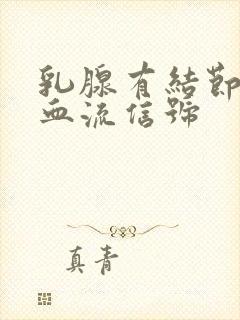 乳腺有結節
血流信號
真青